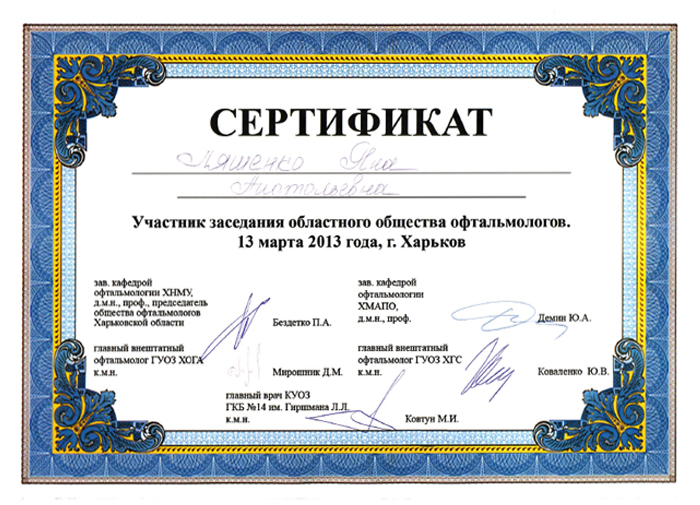 СЕРТИФИКАТ
Ляшенко Яна
Анатольевна
Участник заседания областного общества офтальмологов.
13 марта 2013 года, г. Харьков
зав. кафедрой
офтальмологии ХНМУ,
д.м.н., проф., председатель
общества офтальмологов
Харьковской области
Бездетко П.А.
зав. кафедрой
офтальмологии
ХМАПО,
д.м.н., проф.
Демин Ю.А.
главный внештатный
офтальмолог ГУОЗ ХОГА
к.м.н.
Мирошник Д.М.
главный внештатный
офтальмолог ГУОЗ ХГС
к.м.н.
Коваленко Ю.В.
главный врач КУОЗ
ГКБ №14 им. Гиршмана Л.Л.
к.м.н.
Ковтун М.И.